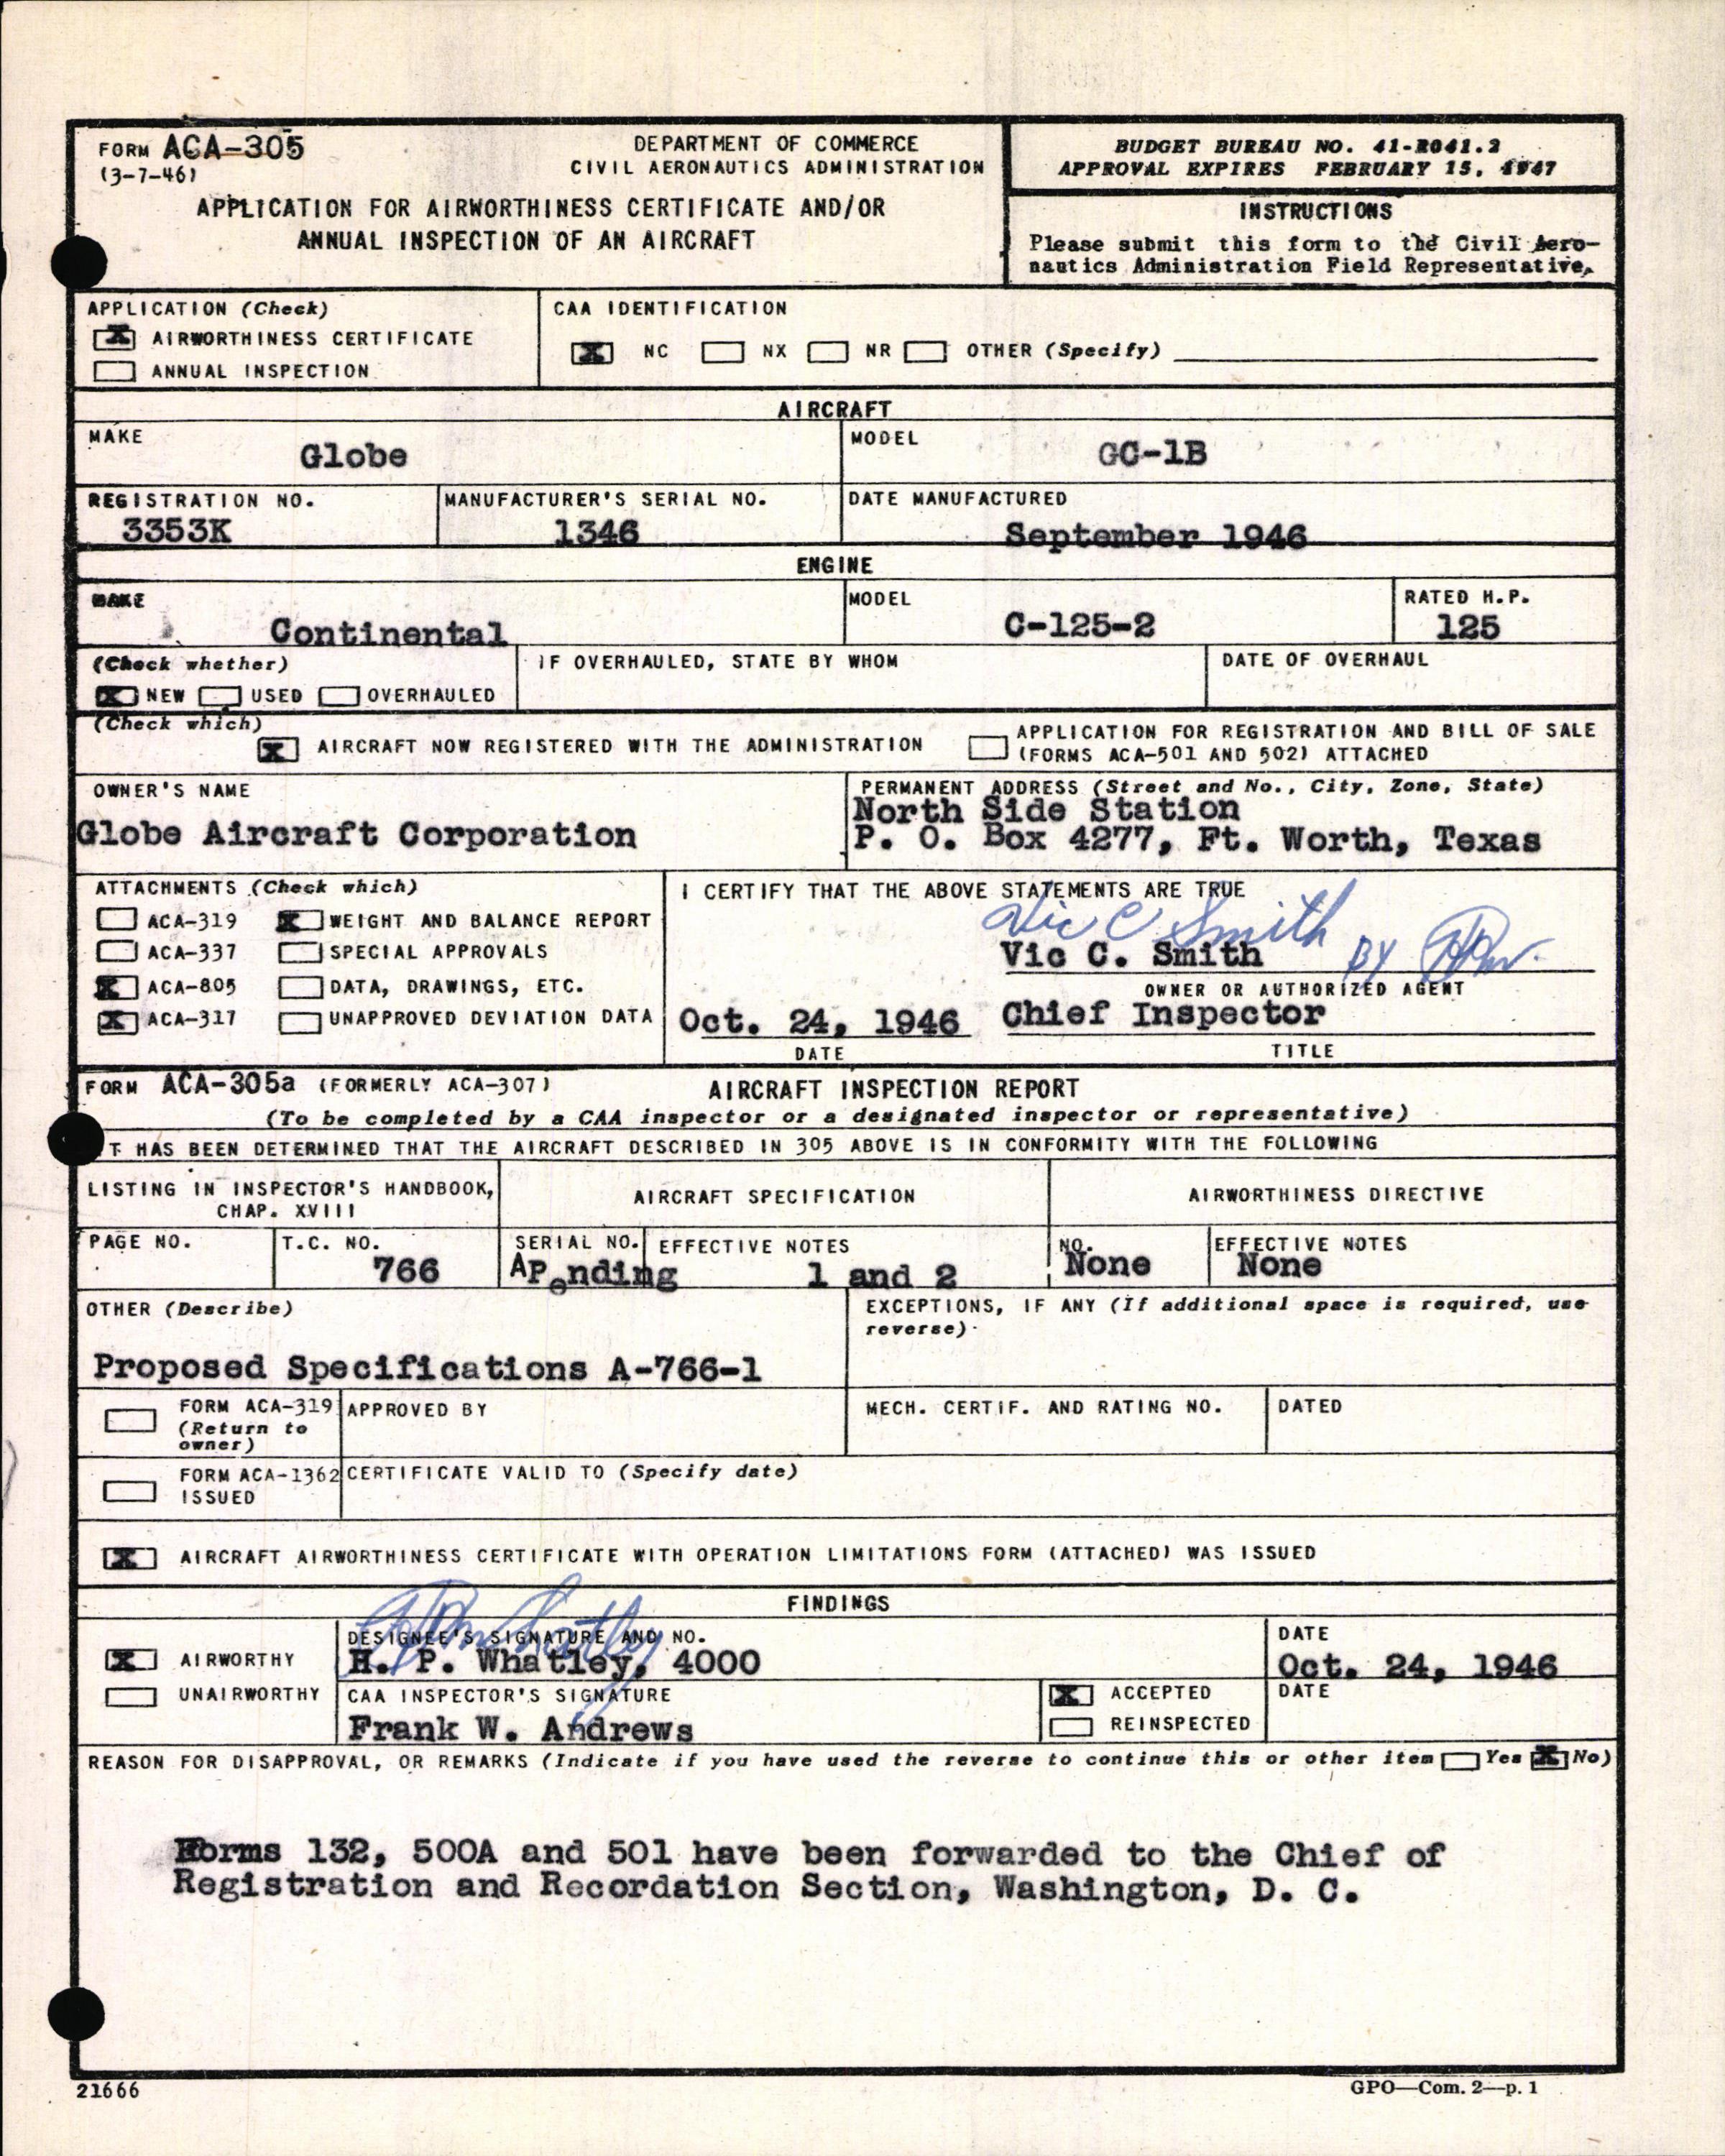 FORM ACA-305
(3-7-46)
DEPARTMENT OF COMMERCE
CIVIL AERONAUTICS ADMINISTRATION
APPLICATION FOR AIRWORTHINESS CERTIFICATE AND/OR
ANNUAL INSPECTION OF AN AIRCRAFT
BUDGET BUREAU NO. 41-R041.2
APPROVAL EXPIRES FEBRUARY 15, 1947
INSTRUCTIONS
Please submit this form to the Civil Aero-
nautics Administration Field Representative.
APPLICATION (Check)
X AIRWORTHINESS CERTIFICATE
ANNUAL INSPECTION
CAA IDENTIFICATION
X NC NX NR OTHER (Specify)
AIRCRAFT
MAKE
Globe
MODEL
GC-1B
REGISTRATION NO.
3353K
MANUFACTURER'S SERIAL NO.
1346
DATE MANUFACTURED
September 1946
ENGINE
MAKE
Continental
MODEL
C-125-2
RATED H.P.
125
(Check whether)
X NEW USED OVERHAULED
IF OVERHAULED, STATE BY WHOM
DATE OF OVERHAUL
(Check which)
X AIRCRAFT NOW REGISTERED WITH THE ADMINISTRATION
APPLICATION FOR REGISTRATION AND BILL OF SALE
(FORMS ACA-501 AND 502) ATTACHED
OWNER'S NAME
Globe Aircraft Corporation
PERMANENT ADDRESS (Street and No., City, Zone, State)
North Side Station
P. O. Box 4277, Ft. Worth, Texas
ATTACHMENTS (Check which)
ACA-319 X WEIGHT AND BALANCE REPORT
ACA-337 SPECIAL APPROVALS
X ACA-805 DATA, DRAWINGS, ETC.
X ACA-317 UNAPPROVED DEVIATION DATA
I CERTIFY THAT THE ABOVE STATEMENTS ARE TRUE
Vic C Smith
Vic C. Smith BY
OWNER OR AUTHORIZED AGENT
Oct. 24, 1946 Chief Inspector
DATE TITLE
FORM ACA-305a (FORMERLY ACA-307)
AIRCRAFT INSPECTION REPORT
(To be completed by a CAA inspector or a designated inspector or representative)
T HAS BEEN DETERMINED THAT THE AIRCRAFT DESCRIBED IN 305 ABOVE IS IN CONFORMITY WITH THE FOLLOWING
LISTING IN INSPECTOR'S HANDBOOK,
CHAP. XVIII
AIRCRAFT SPECIFICATION
AIRWORTHINESS DIRECTIVE
PAGE NO.
T.C. NO.
766
SERIAL NO.
APending
EFFECTIVE NOTES
1 and 2
NO.
None
EFFECTIVE NOTES
None
OTHER (Describe)
Proposed Specifications A-766-1
EXCEPTIONS, IF ANY (If additional space is required, use
reverse)
FORM ACA-319
(Return to
owner)
APPROVED BY
MECH. CERTIF. AND RATING NO.
DATED
FORM ACA-1362
ISSUED
CERTIFICATE VALID TO (Specify date)
X AIRCRAFT AIRWORTHINESS CERTIFICATE WITH OPERATION LIMITATIONS FORM (ATTACHED) WAS ISSUED
FINDINGS
X AIRWORTHY
UNAIRWORTHY
DESIGNEE'S SIGNATURE AND NO.
H. P. Whatley, 4000
DATE
Oct. 24, 1946
CAA INSPECTOR'S SIGNATURE
Frank W. Andrews
X ACCEPTED
REINSPECTED
DATE
REASON FOR DISAPPROVAL, OR REMARKS (Indicate if you have used the reverse to continue this or other item Yes X No)
Forms 132, 500A and 501 have been forwarded to the Chief of
Registration and Recordation Section, Washington, D. C.
21666
GPO—Com. 2—p. 1